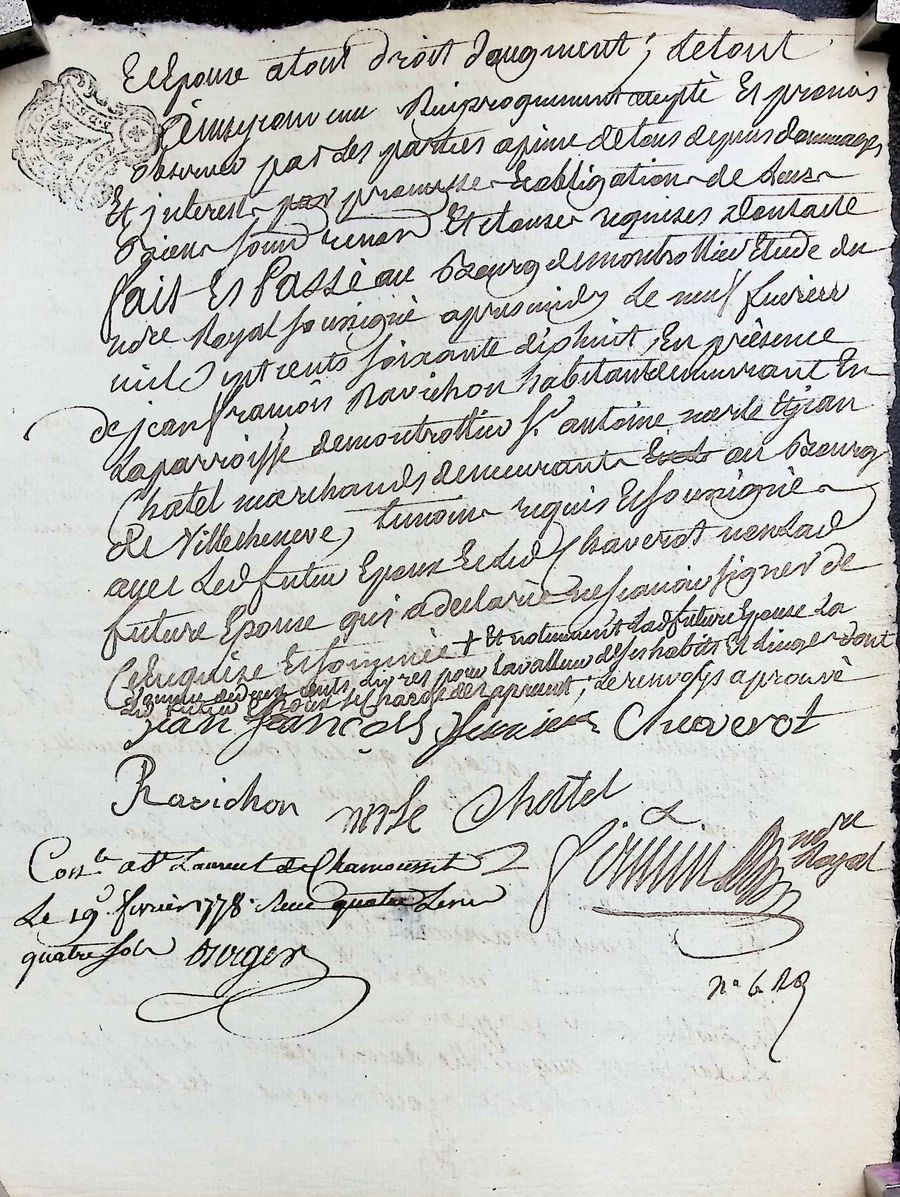 Et Epouse a tout droit d'augment; de tout
Reciproquement accepté Et promis
observer par Les parties a peine de tous depens dommages
Et interest par promesse Et obligation de Leurs
Biens soumis renon Et clause requises dont acte
fait Et Passé au Bourg de montrottier Etude du
no.re Royal soussigné apres midy Le neuf fevrier
mil sept cents soixante dix huit, En présence
de jean françois Ravichon habitant demeurant En
La parroisse de montrottier Sr antoine merle Et jean
Chatel marchands demeurants au Bourg
de Villecheneve, temoins requis Et soussignés
avec Led futur Epoux Et Led Chaverot non Lad
future Epouse qui a declaré ne scavoir signer de
Ce Enquise Et sommée + Et notamment Lad future Epouse La
somme de deux cents Livres pour La valleur de ses habits Et Linges dont
Led futur Epoux se Charge des apresent; Le renvoys aprouvé
jean françois Chaverot
Ravichon merle Chattel
Con.lé a St Laurent de Chamousset
Le 19. fevrier 1778. Reçu quatre Livres
quatre sols Burger
no.re Royal
N.o 6